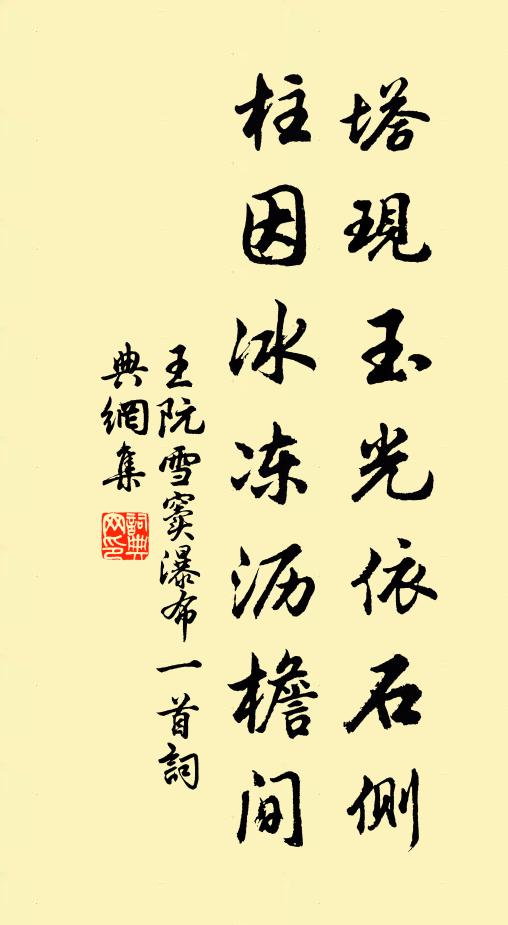 塔現玉光依石側
柱因冰冻沥檐间
王阮雪窦瀑布一首詞
典網集
詞典網印